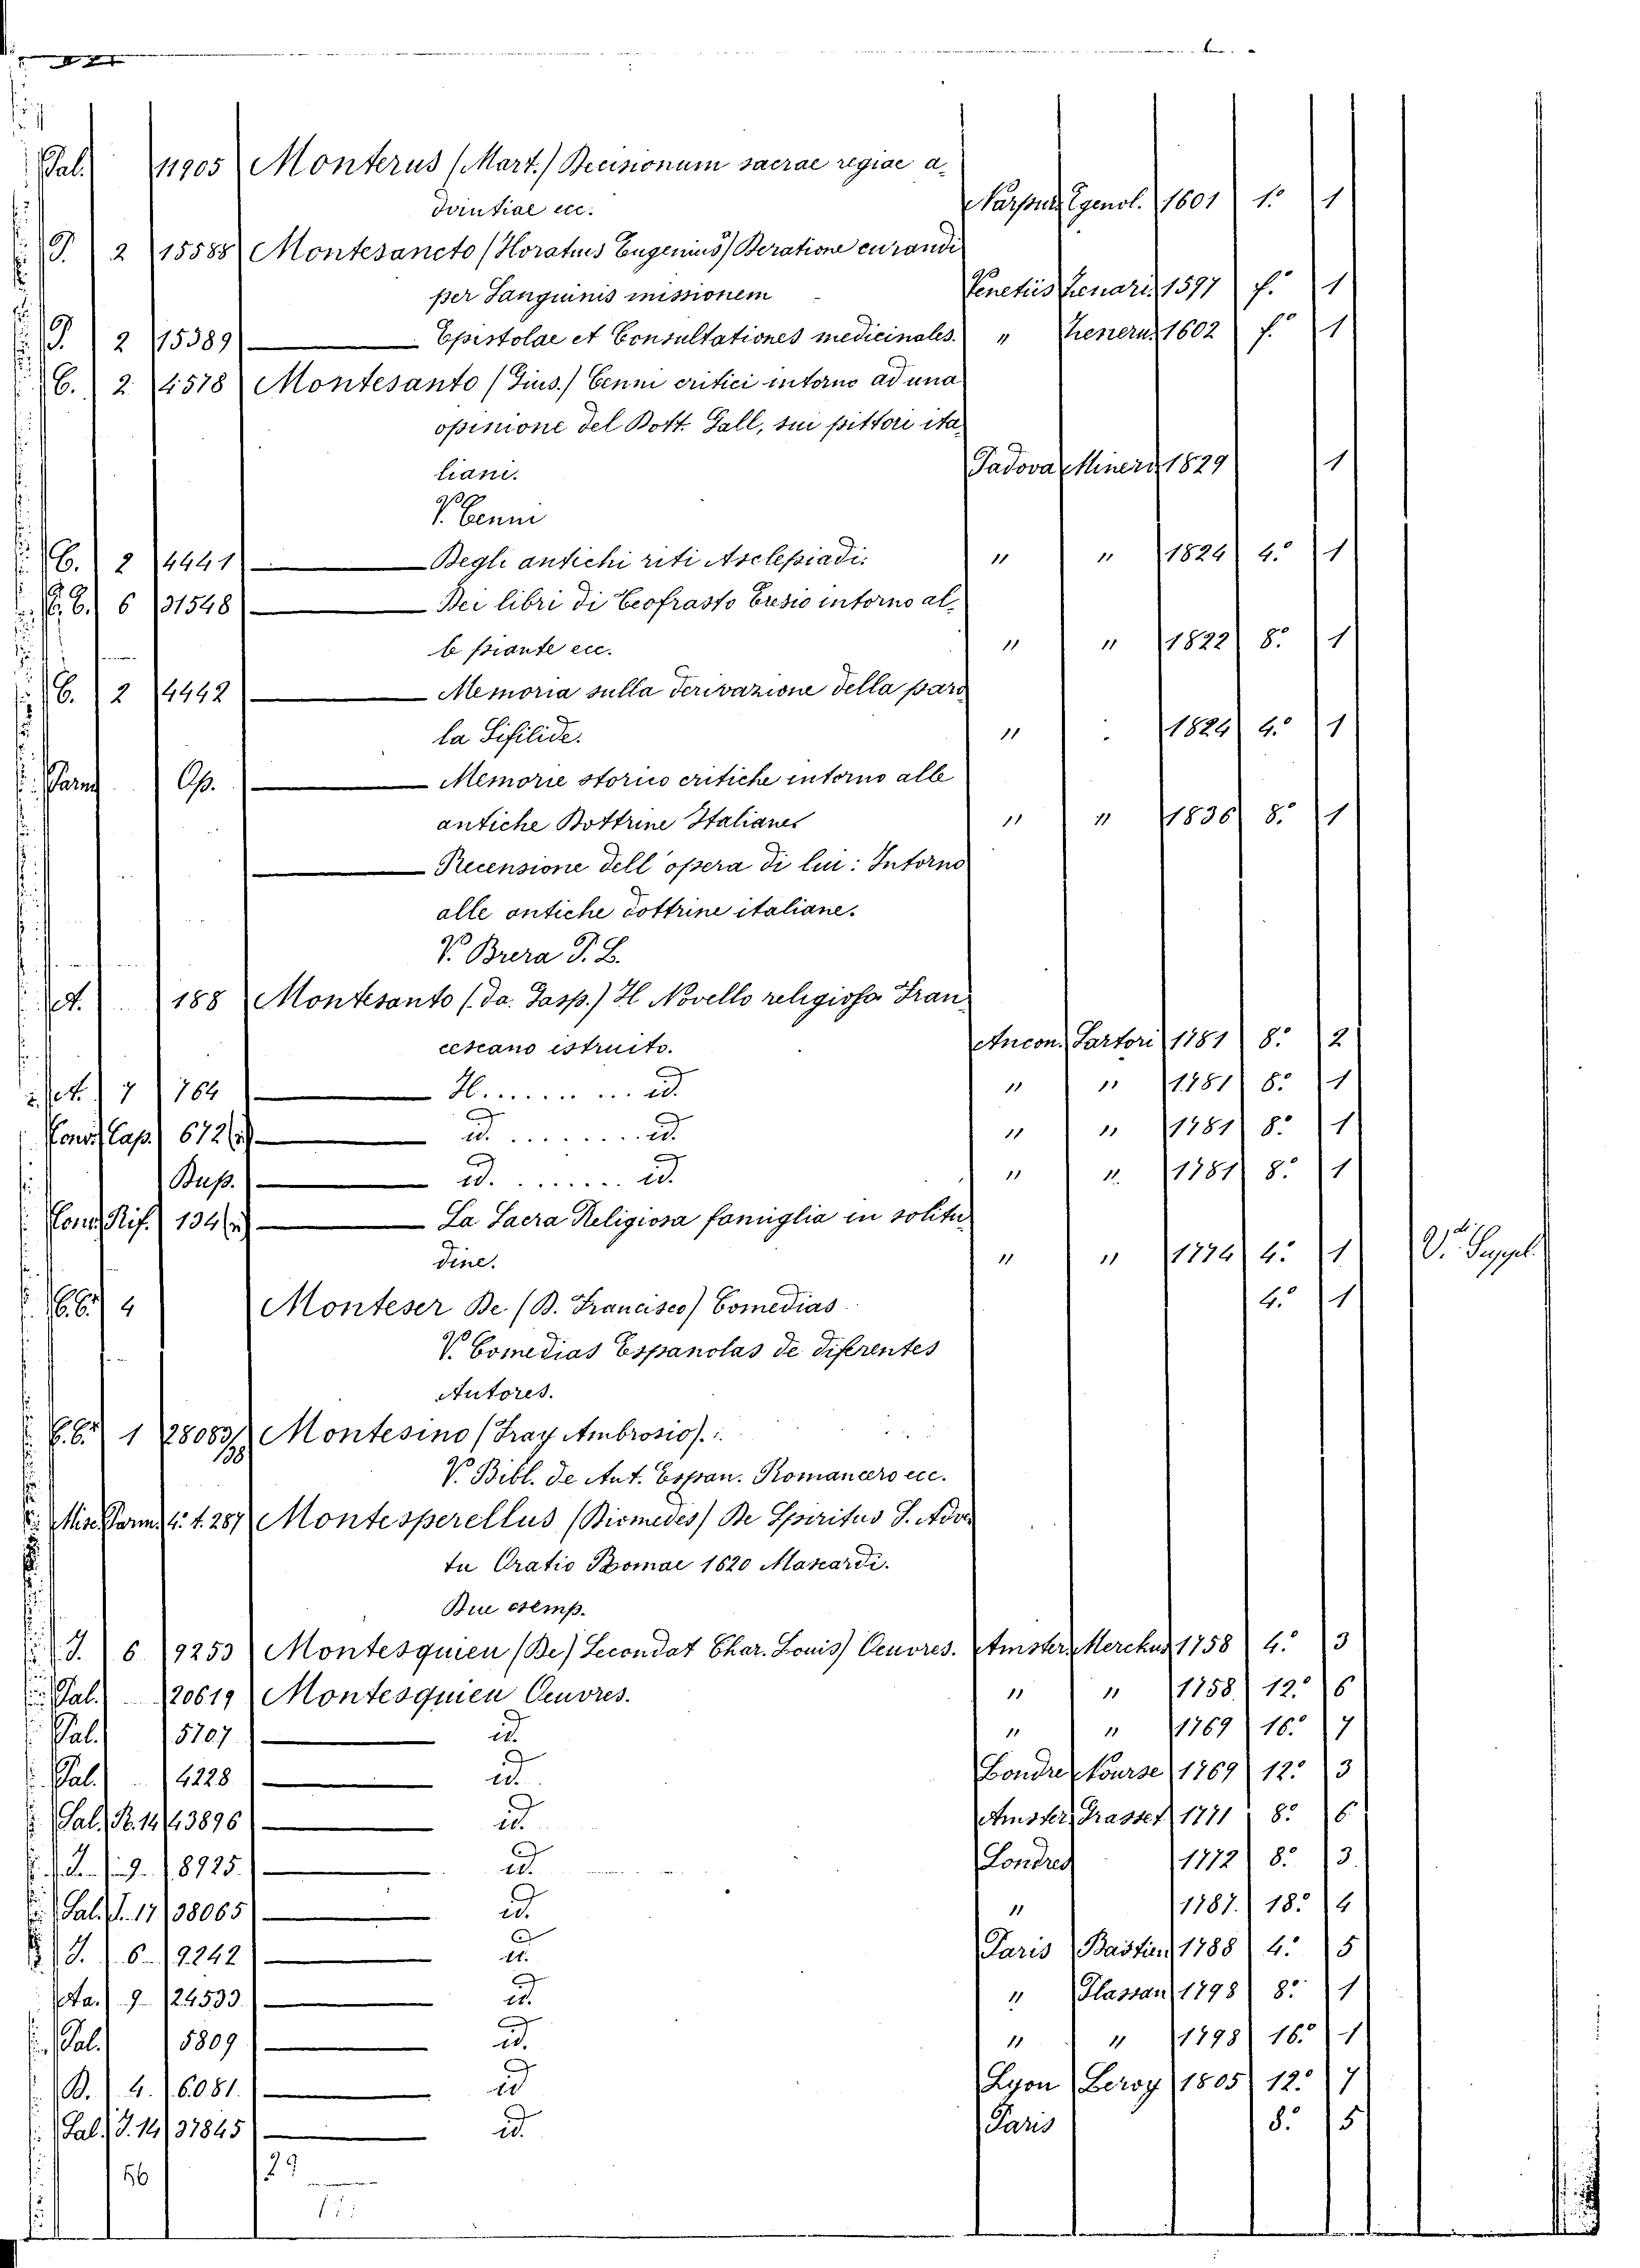 Pal. 11905 Monterus (Mart.) Decisionum sacrae regiae a-
dvintiae ecc. Egenol. 1601 1.° 1
P. 2 15588 Montesancto (Horatius Eugenius) De ratione curandi
per Sanguinis missionem Venetiis Zenari. 1597 f.° 1
P. 2 15389 Epistolae et Consultationes medicinales. " 1602 f.° 1
C. 2 4578 Montesanto (Gius.) Cenni critici intorno ad una
opinione del Dott. Gall, sui pittori ita-
liani. Padova Minerv. 1829 1
V. Cenni
C. 2 4441 Degli antichi riti Asclepiadi. " " 1824 4.° 1
6 31548 Dei libri di Teofrasto Eresio intorno al-
le piante ecc. " " 1822 8.° 1
C. 2 4442 Memoria sulla derivazione della paro-
la Sifilide. " 1824 4.° 1
Parm. Op. Memorie storico critiche intorno alle
antiche Dottrine Italiane " " 1836 8.° 1
Recensione dell'opera di lui: Intorno
alle antiche dottrine italiane.
V. Brera
A. 188 Montesanto (da. Gasp.) Il Novello religioso Fran-
cescano istruito. Ancon. Sartori 1781 8.° 2
A. 7 764 Il ........ id. " " 1781 8.° 1
Conv. Cap. 672 id. ........ id. " " 1781 8.° 1
Dup. id. ....... id. " " 1781 8.° 1
Conv. Rif. 134 La Sacra Religiosa famiglia in solitu-
dine. " " 1774 4.° 1 V. Suppel.
4 Monteser De (D. Francisco) Comedias 4.° 1
V. Comedias Espanolas de diferentes
Autores.
1 28083/ Montesino (Fray Ambrosio).
V. Bibl. de Aut. Espan. Romancero ecc.
Misc. Parm. 4. t. 287 Montesperellus (Diomedes) De Spiritus S. Adven-
tu Oratio Romae 1620 Mascardi.
Due esemp.
J. 6 9253 Montesquieu (De) Secondat Char. Louis) Oeuvres. Amster. Merckus 1758 4.° 3
Pal. 20619 Montesquieu Oeuvres. " " 1758 12.° 6
Pal. 5707 id. " " 1769 16.° 7
Pal. 4228 id. Londre Nourse 1769 12.° 3
Sal. R. 14 43896 id. Amster. Grasset 1771 8.° 6
9 8925 id. Londres 1772 8.° 3
Sal. J. 17 38065 id. " 1787. 18.° 4
J. 6 9242 id. Paris Bastien 1788 4.° 5
9 24533 id. " Plassan 1798 8.° 1
Pal. 5809 id. " " 1798 16.° 1
B. 4. 6081 id. Lyon Leroy 1805 12.° 7
Sal. J. 14 37845 id. Paris 8.° 5
56 29